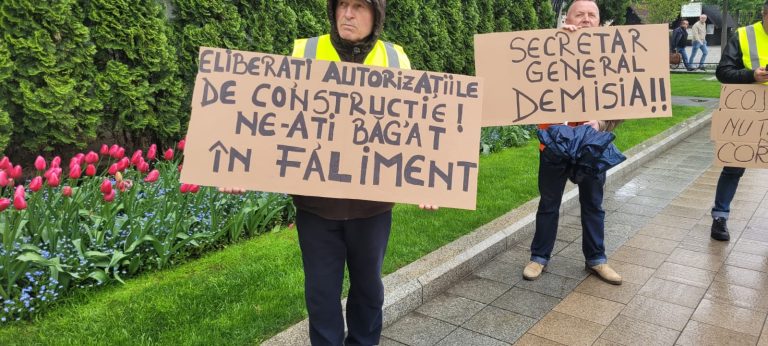 ELIBERAȚI AUTORIZAȚIILE
DE CONSTRUCȚIE!
NE-AȚI BĂGAT
ÎN FALIMENT
SECRETAR
GENERAL
DEMISIA!!
NU